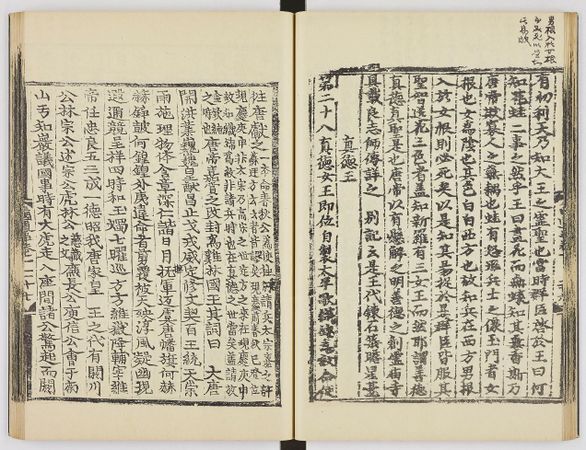 有切利天乃知大王之靈聖也當時群臣啓於王曰何
知花蛙二事之然乎王曰畫花而無蝶知其無香斯乃
唐帝欺寡人之無耦也蛙有怒形兵士之像玉門者女
根也女爲陰也其色白白西方也故知兵在西方男根
入於女根則必死矣以是知其易捉於是群臣皆服其
聖智送花三色者盖知新羅有三女王而然耶謂善德
眞德眞聖是也唐帝以有懸解之明善德之創靈庙寺
具載良志師傳詳之 別記云是王代鍊石築瞻星臺
眞德王
第二十八眞德女王即位自製太平歌織錦爲紋命使
往唐獻之 一本命春秋公爲使往仍請兵太宗嘉之許
現慶庚申非太宗乃高宗之世定方之來在現慶庚申
故知織錦爲紋非請兵時也在眞德之世當矣盖請放
唐帝嘉賞之改封爲雞林國王其詞曰 大唐
開洪業巍巍皇猷昌止戈戎威定修文契百王統天崇
雨施理物体含章深仁諧日月撫軍邁虞唐幡旗何赫
赫錚鼓何鍠鍠外夷違命者剪覆被天殃淳風凝幽現
遐邇競呈祥四時和玉燭七曜巡方方維嶽降輔宰維
帝任忠良五三成一德昭我唐家皇 王之代有閼川
公林宗公述宗公虎林公慈藏之父廉長公庾信公會于南
山亐知巖議國事時有大虎走入座間諸公驚起而閼